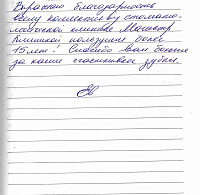 Выражаю благодарность
всему коллективу стомато-
логической клинике Магистр.
Клиникой пользуемся более
15 лет! Спасибо вам большое
за наши счастливые зубки.